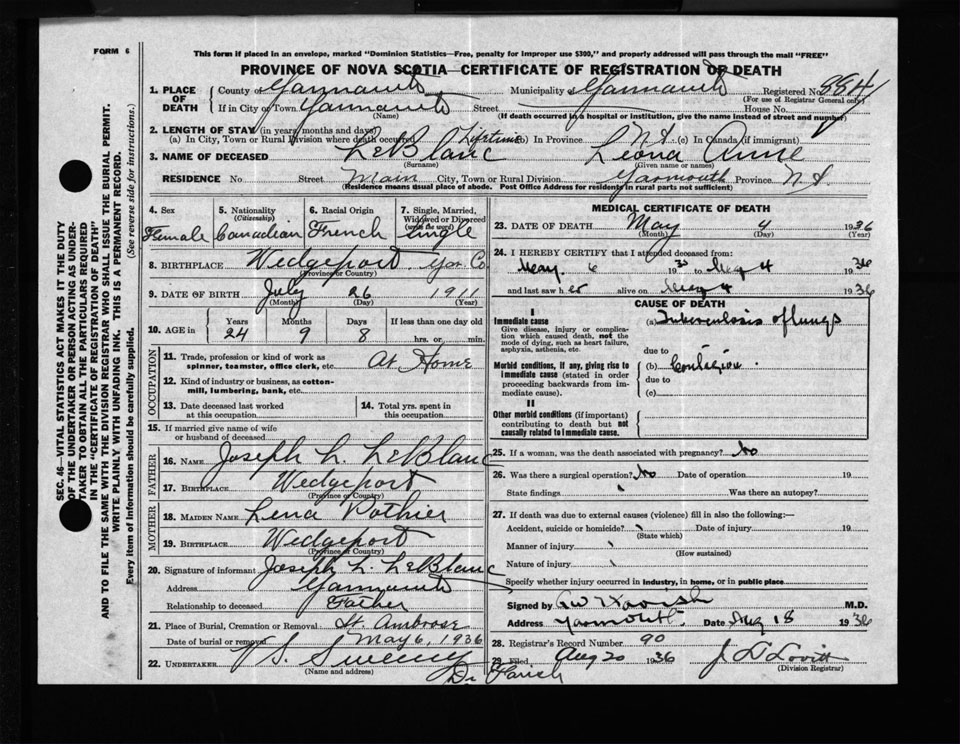 FORM 6
This form if placed in an envelope, marked "Dominion Statistics—Free, penalty for improper use $300," and properly addressed will pass through the mail "FREE"
PROVINCE OF NOVA SCOTIA—CERTIFICATE OF REGISTRATION OF DEATH
1. PLACE OF DEATH County of Yarmouth Municipality of Yarmouth Registered No. 884
(For use of Registrar General only)
If in City or Town Yarmouth Street House No.
(Name) (If death occurred in a hospital or institution, give the name instead of street and number)
2. LENGTH OF STAY (in years, months and days)
(a) In City, Town or Rural Division where death occurred (b) In Province (c) In Canada (if immigrant)
3. NAME OF DECEASED LeBlanc Leona Anne
(Surname) (Given name or names)
RESIDENCE No Street Main City, Town or Rural Division Yarmouth Province N.S.
(Residence means usual place of abode. Post Office Address for residents in rural parts not sufficient)
4. Sex 5. Nationality (Citizenship) 6. Racial Origin 7. Single, Married, Widowed or Divorced (write the word)
Female Canadian French Single
8. BIRTHPLACE Wedgeport Yar. Co.
(Province or Country)
9. DATE OF BIRTH July 26 1911
(Month) (Day) (Year)
10. AGE in Years Months Days If less than one day old
24 9 8 hrs. or min.
OCCUPATION
11. Trade, profession or kind of work as spinner, teamster, office clerk, etc. At Home
12. Kind of industry or business, as cotton-mill, lumbering, bank, etc.
13. Date deceased last worked at this occupation
14. Total yrs. spent in this occupation
15. If married give name of wife or husband of deceased
FATHER
16. NAME Joseph L. LeBlanc
17. BIRTHPLACE Wedgeport
(Province or Country)
MOTHER
18. MAIDEN NAME Lena Pothier
19. BIRTHPLACE Wedgeport
(Province or Country)
20. Signature of informant Joseph L. LeBlanc
Address Yarmouth
Relationship to deceased Father
21. Place of Burial, Cremation or Removal St. Ambrose
Date of burial or removal May 6, 1936
22. UNDERTAKER V. S. Sweeney
(Name and address)
MEDICAL CERTIFICATE OF DEATH
23. DATE OF DEATH May 4 1936
(Month) (Day) (Year)
24. I HEREBY CERTIFY that I attended deceased from:
May 6 193 to May 4 1936
and last saw her alive on May 4 1936
CAUSE OF DEATH
I
Immediate cause (a) Tuberculosis of lungs
Give disease, injury or complication which caused death, not the mode of dying, such as heart failure, asphyxia, asthenia, etc.
due to
Morbid conditions, if any, giving rise to immediate cause (stated in order proceeding backwards from immediate cause).
(b) Contagion
due to
(c)
II
Other morbid conditions (if important) contributing to death but not causally related to immediate cause.
25. If a woman, was the death associated with pregnancy? No
26. Was there a surgical operation? No Date of operation 19
State findings Was there an autopsy?
27. If death was due to external causes (violence) fill in also the following:—
Accident, suicide or homicide? Date of injury 19
(State which)
Manner of injury
(How sustained)
Nature of injury
Specify whether injury occurred in industry, in home, or in public place
Signed by M.D.
Address Yarmouth Date Aug 18 1936
28. Registrar's Record Number 90
29. Filed Aug 20 1936 J D Lovitt
(Division Registrar)
Dr Farish
SEC. 46—VITAL STATISTICS ACT MAKES IT THE DUTY
OF THE UNDERTAKER OR PERSON ACTING AS UNDER-
TAKER TO OBTAIN ALL THE PARTICULARS REQUIRED
IN THE "CERTIFICATE OF REGISTRATION OF DEATH"
AND TO FILE THE SAME WITH THE DIVISION REGISTRAR WHO SHALL ISSUE THE BURIAL PERMIT.
WRITE PLAINLY WITH UNFADING INK. THIS IS A PERMANENT RECORD.
Every item of information should be carefully supplied. (See reverse side for instructions.)